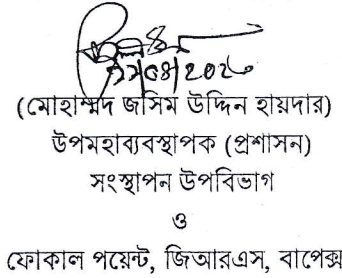 (মোহাম্মদ জসিম উদ্দিন হায়দার)
উপমহাব্যবস্থাপক (প্রশাসন)
সংস্থাপন উপবিভাগ
ও
ফোকাল পয়েন্ট, জিআরএস, বাপেক্স